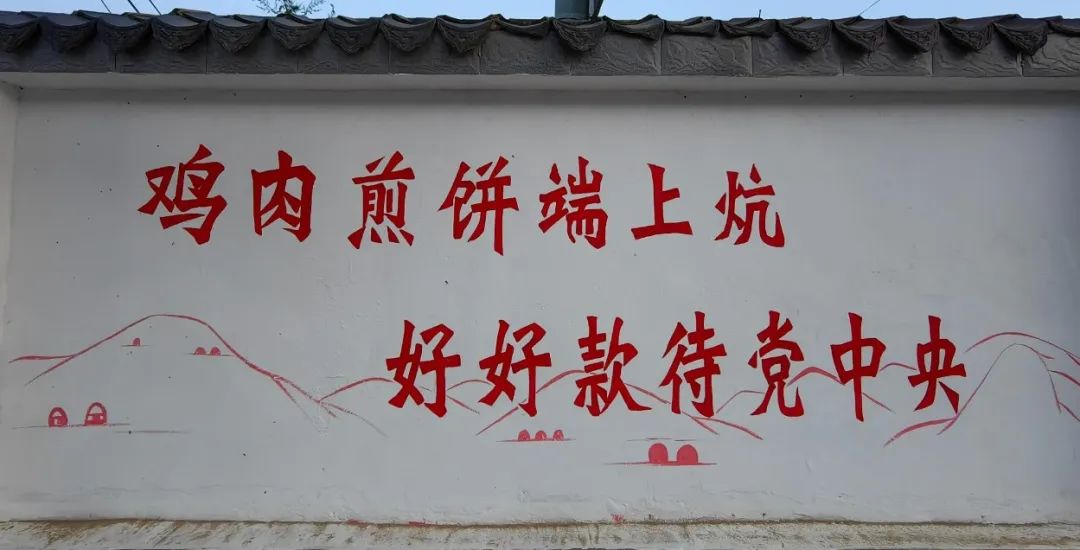 鸡肉煎饼端上炕
好好款待党中央